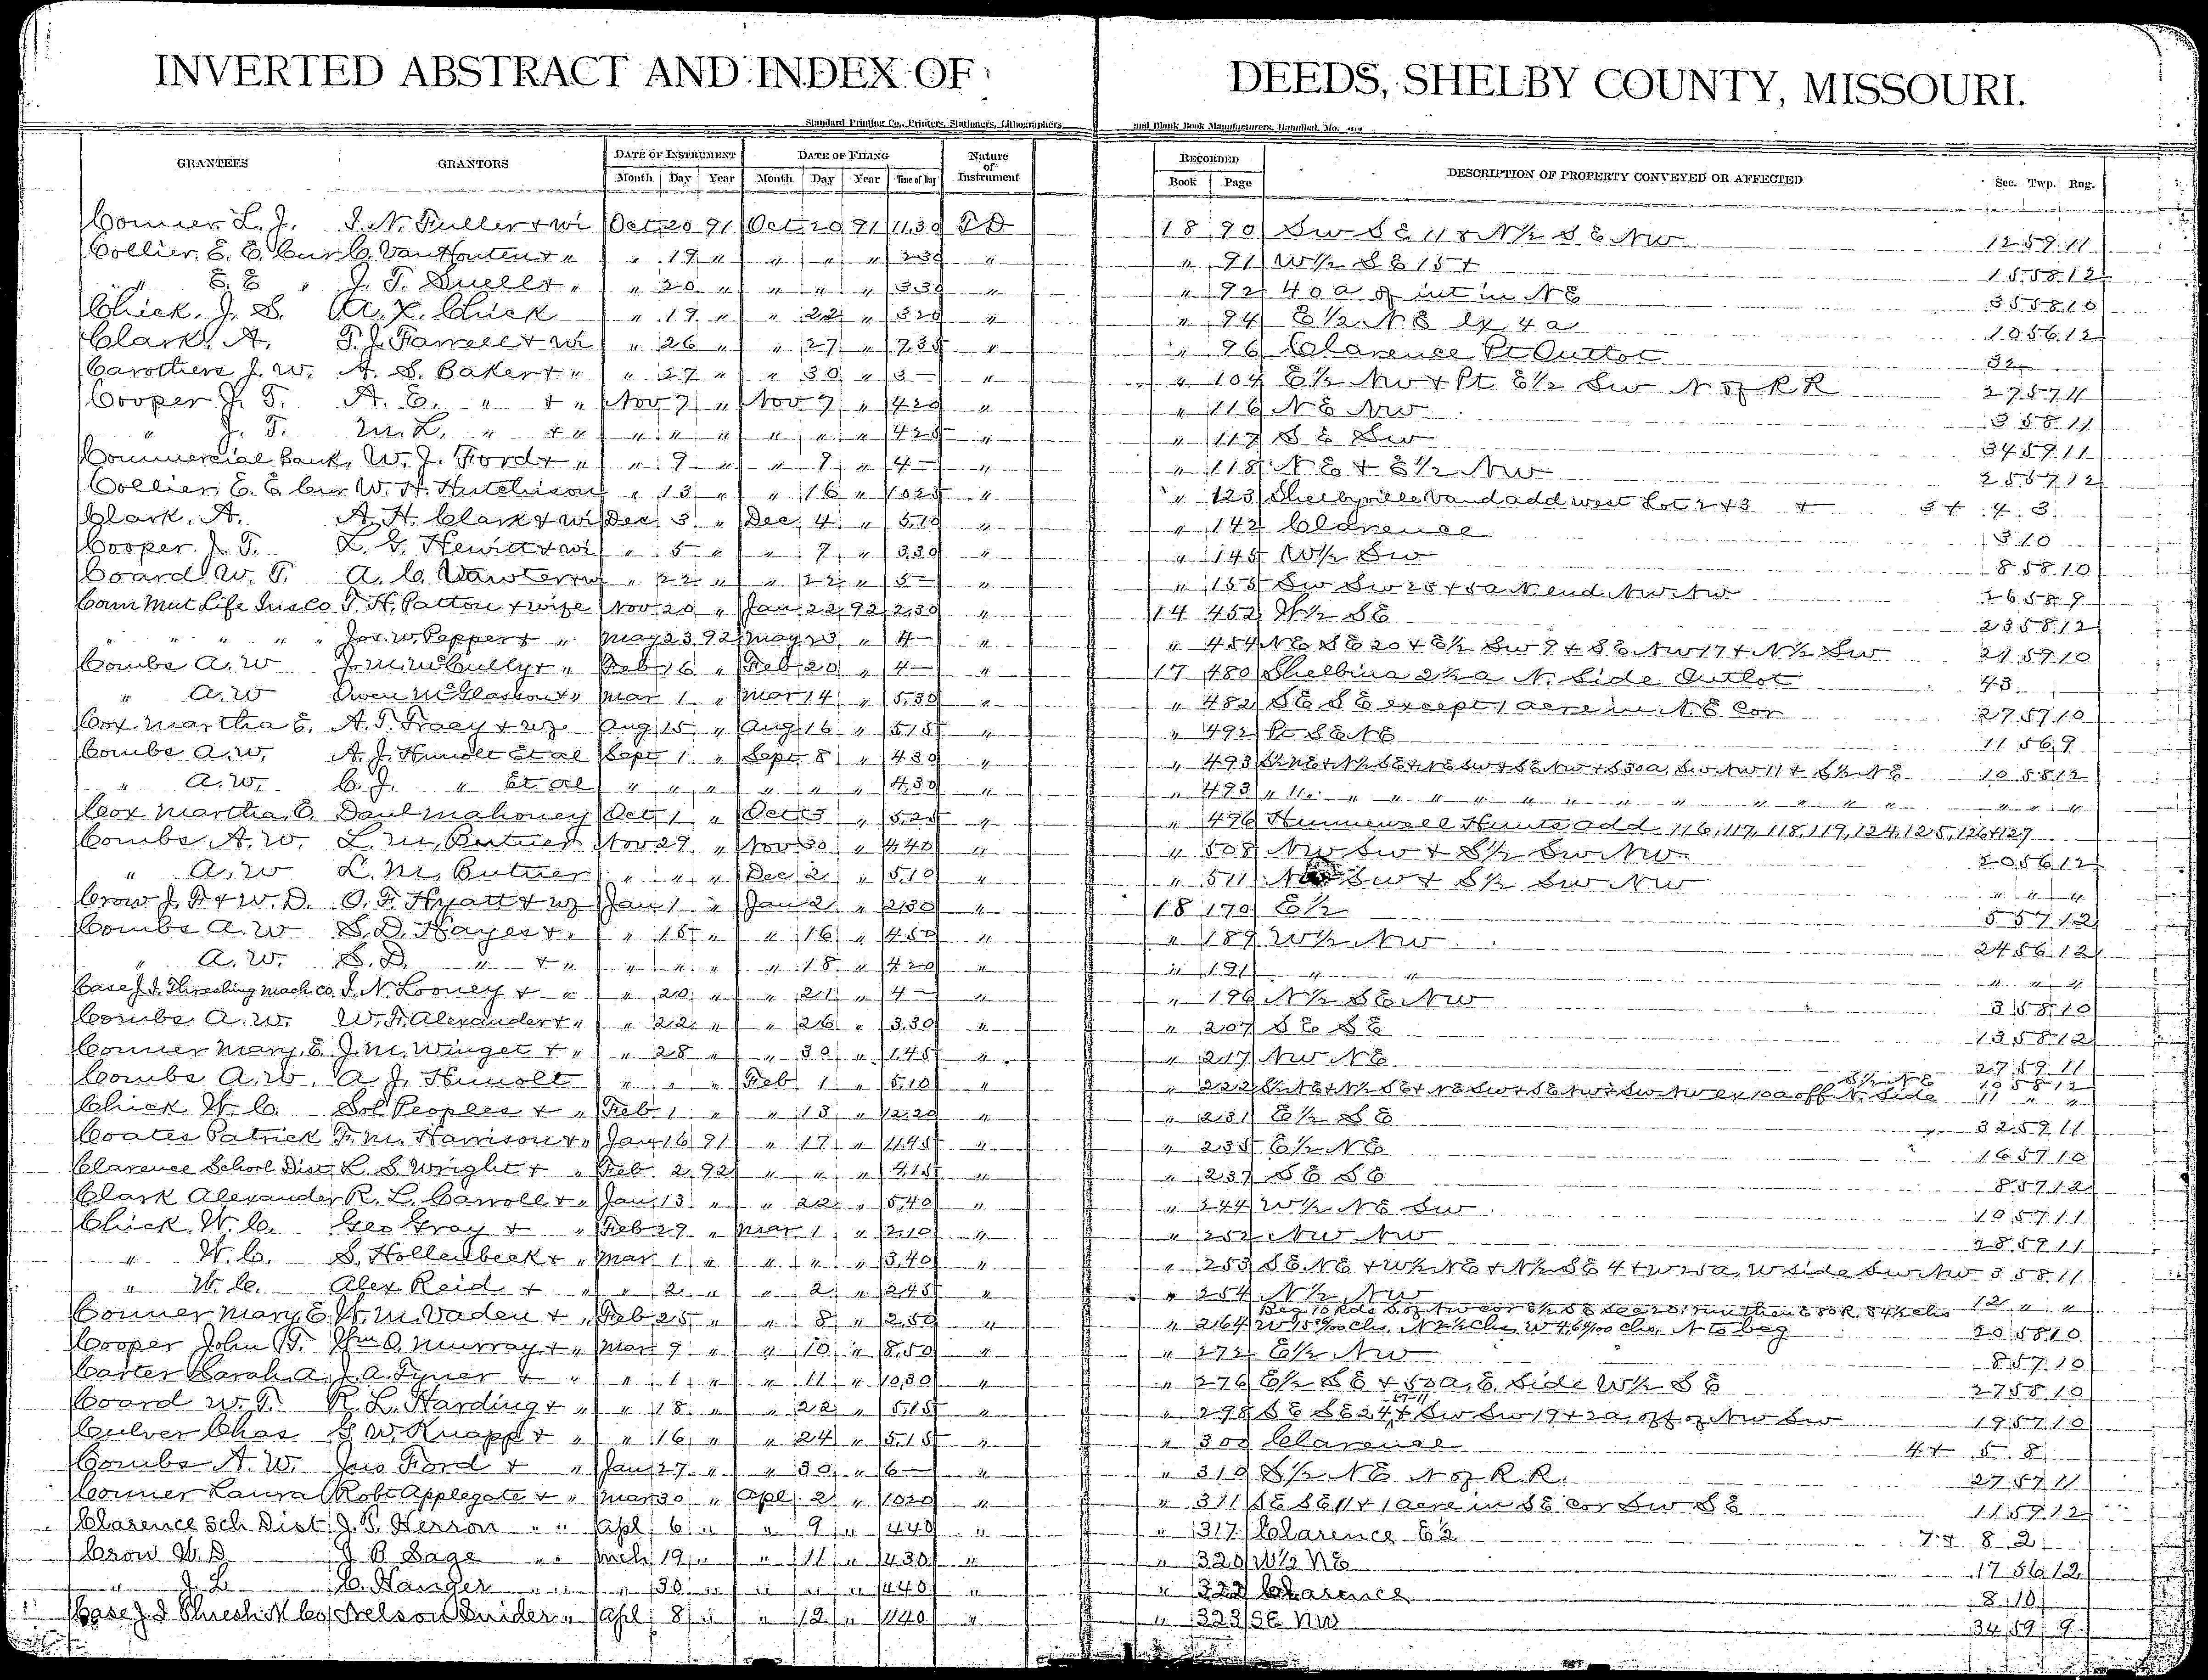 INVERTED ABSTRACT AND INDEX OF DEEDS, SHELBY COUNTY, MISSOURI.
Standard Printing Co., Printers, Stationers, Lithographers and Blank Book Manufacturers, Hannibal, Mo.
GRANTEES GRANTORS DATE OF INSTRUMENT DATE OF FILING Nature of Instrument RECORDED DESCRIPTION OF PROPERTY CONVEYED OR AFFECTED Sec. Twp. Rng.
Month Day Year Month Day Year Time of Day Book Page
Conner L. J. I. N. Fuller + wi Oct 20 91 Oct 20 91 11.30 T D 18 90 SW SE 11 + N½ SE NW 12 59 11
Collier, E. E. Cur C. VanHouten + " " 19 " " " " 2 30 " " 91 W½ SE 15 + 15 58 12
" E. E " J. T. Duell + " " 20 " " " " 3 30 " " 92 40 a of int in NE 35 58 10
Chick, J. S. A. X. Chick " 19 " " 22 " 3 20 " " 94 E½ NE ex 4 a 10 56 12
Clark, A. T. J. Farrell + wi " 26 " " 27 " 7.35 " " 96 Clarence Pt Outlot 32
Carothers J. W. A. S. Baker + " " 27 " " 30 " 3 — " " 104 E½ NW + Pt E½ SW N of R R 27 57 11
Cooper J. T. A. E. " + " Nov 7 " Nov 7 " 4 20 " " 116 NE NW 3 58 11
" J. T. M. L. " + " " " " " " " 4 25 " " 117 SE SW 34 59 11
Commercial Bank, W. J. Ford + " " 9 " " 9 " 4 — " " 118 NE + E½ NW 25 57 12
Collier, E. E. Cur W. H. Hutchison " 13 " " 16 " 10 25 " " 123 Shelbyville Vandadd west Lot 2 + 3 + 3 + 4 3
Clark, A. A. H. Clark + wi Dec 3 " Dec 4 " 5.10 " " 142 Clarence 3 10
Cooper J. T. L. G. Hewitt + wi " 5 " " 7 " 3.30 " " 145 W½ SW 8 58 10
Coard W. T. A. C. Vawter + w " 22 " " 22 " 5 — " " 155 SW SW 25 + 5 a N. end NW NW 26 58 9
Conn Mut Life Ins Co T. H. Patton + wife Nov 20 " Jan 22 92 2.30 " 14 452 W½ SE 23 58 12
" " " " " Jos. W. Pepper + " May 23 92 May 23 " 4 — " " 454 NE SE 20 + E½ SW 9 + SE NW 17 + N½ SW 21 59 10
Combs A. W J. M. McCully + " Feb 16 " Feb 20 " 4 — " 17 480 Shelbina 2½ a N. Side Outlot 43
" A. W Owen McGlashon + " Mar 1 " Mar 14 " 5.30 " " 482 SE SE except 1 acre in N.E Cor 27 57 10
Cox Martha E. A. T. Tracy + wf Aug 15 " Aug 16 " 5 15 " " 492 Pt SE NE 11 56 9
Combs A. W. A. J. Hunolt Et al Sept 1 " Sept 8 " 4 30 " " 493 S½ NE + N½ SE + NE SW + SE NW + S 30 a, SW NW 11 + S½ NE 10 58 12
" A. W. C. J. " Et al " " " " " " 4.30 " " 493 " " " " " " " " " " " "
Cox Martha E. Danl Mahoney Oct 1 " Oct 3 " 5.25 " " 496 Hunnewell Hunts add 116, 117, 118, 119, 124, 125, 126 + 127
Combs A. W. L. M. Butner Nov 29 " Nov 30 " 4 40 " " 508 NW SW + S½ SW NW 20 56 12
" A. W L. M. Butner " " " Dec 2 " 5.10 " " 511 SW + S½ SW NW " " "
Crow J. F + W. D. O. F. Hyatt + wf Jan 1 " Jan 2 " 2 30 " 18 170 E½ 5 57 12
Combs A. W S. D. Hayes + " " 15 " " 16 " 4 50 " " 189 W½ NW 24 56 12
" A. W. S. D. " + " " " " " 18 " 4 20 " " 191 " " " " "
Case J. I. Threshing Mach Co. I. N. Looney + " " 20 " " 21 " 4 — " " 196 N½ SE NW 3 58 10
Combs A. W. W. F. Alexander + " " 22 " " 26 " 3.30 " " 207 SE SE 13 58 12
Conner Mary E J. M. Winget + " " 28 " " 30 " 1.45 " " 217 NW NE 27 59 11
Combs A. W. A. J. Hunolt " " " Feb 1 " 5.10 " " 222 S½ NE + N½ SE + NE SW + SE NW + SW NW ex 10 a off N. Side S½ NE 10 58 12 11 " "
Chick W. C. Sol Peoples + " Feb 1 " " 13 " 12.20 " " 231 E½ SE 32 59 11
Coates Patrick F. M. Harrison + " Jan 16 91 " 17 " 11.45 " " 235 E½ NE 16 57 10
Clarence School Dist L. S. Wright + " Feb 2 92 " " " 4.15 " " 237 SE SE 8 57 12
Clark Alexander R. L. Carroll + " Jan 13 " " 22 " 5.40 " " 244 W½ NE SW 10 57 11
Chick W. C. Geo Gray + " Feb 29 " Mar 1 " 2.10 " " 252 NW NW 28 59 11
" W. C. S. Hollenbeck + " Mar 1 " " " " 3.40 " " 253 SE NE + W½ NE + N½ SE 4 + W 25 a, W side SW NW 3 58 11
" W. C. Alex Reid + " " 2 " " 2 " 2.45 " " 254 N½ NW 12 " "
Conner Mary E W. M. Vaden + " Feb 25 " " 8 " 2.50 " " 264 Beg 10 Rds S. of NW cor 20 58 10
Cooper John T. Wm O. Murray + " Mar 9 " " 10 " 8.50 " " 272 E½ NW 8 57 10
Carter Sarah A. J. A. Tyner + " " 1 " " 11 " 10.30 " " 276 E½ SE + 50 a, E. Side W½ SE 27 58 10
Coard W. T. R. L. Harding + " " 18 " " 22 " 5.15 " " 298 SE SE 24 57-11 + SW SW 19 + 2 a, off of NW SW 19 57 10
Culver Chas G. W. Knapp + " " 16 " " 24 " 5.15 " " 300 Clarence 4 + 5 8
Combs A. W. Jno Ford + " Jan 27 " " 30 " 6 — " " 310 S½ NE N of R.R. 27 57 11
Conner Laura Robt Applegate + " Mar 30 " Apl 2 " 10 20 " " 311 SE SE 11 + 1 acre in SE Cor SW SE 11 59 12
Clarence Sch Dist J. T. Herron " " Apl 6 " " 9 " 4 40 " " 317 Clarence E½ 7 + 8 2
Crow W. D J B Sage " " Mch 19 " " 11 " 4 30 " " 320 W½ NE 17 56 12
" J. L C. Hanger " " " 30 " " " " 4 40 " " 322 Clarence 8 10
Case J. I Thresh M Co Nelson Snider " Apl 8 " " 12 " 11 40 " " 323 SE NW 34 59 9